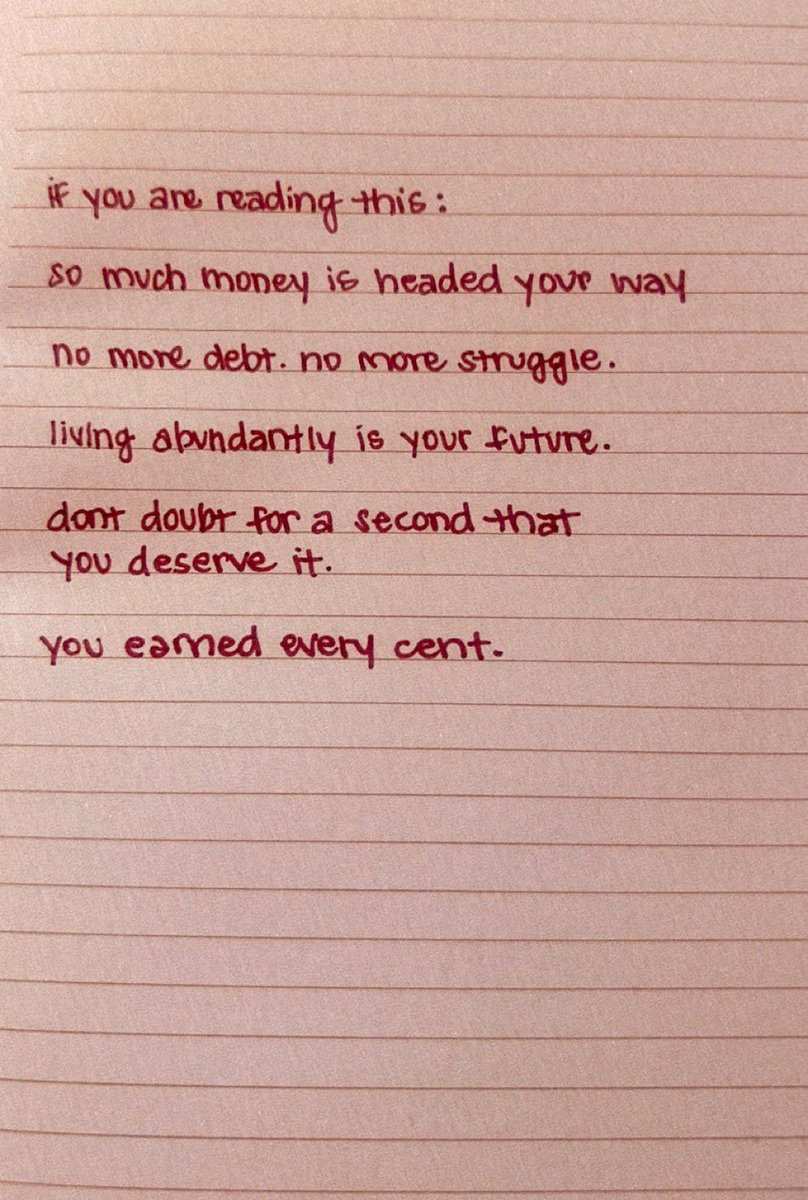 if you are reading this:
so much money is headed your way
no more debt. no more struggle.
living abundantly is your future.
dont doubt for a second that
you deserve it.
you earned every cent.